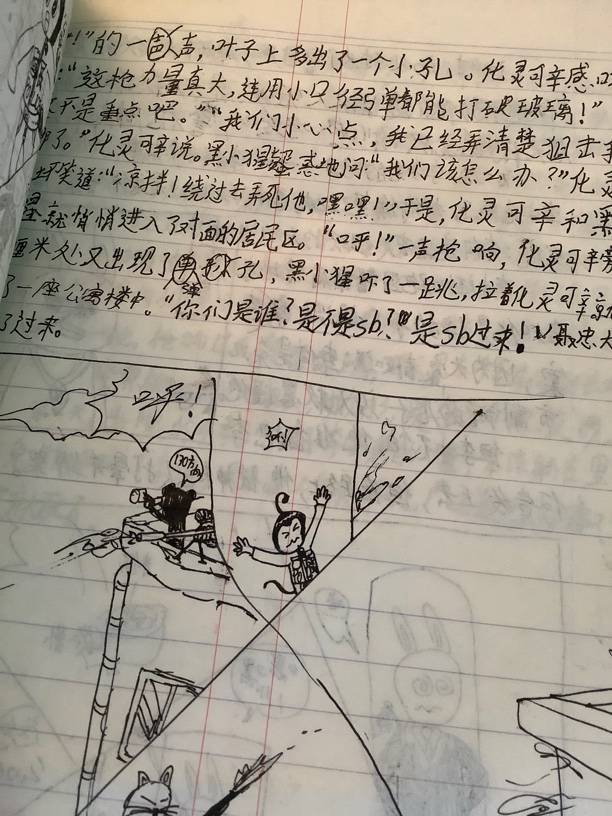 ！”的一声，叶子上多出了一个小孔。化灵可辛感叹
：“这枪力量真大，连用小口径弹都能打破玻璃！”
不是重点吧。”“我们小心点，我已经弄清楚狙击手
了。”化灵可辛说。黑小猩疑惑地问：“我们该怎么办？”化灵
坏笑道：“凉拌！绕过去弄死他，嘿嘿！”于是，化灵可辛和黑
猩就悄悄进入了对面的居民区。“呯！”一声枪响，化灵可辛旁
厘米处又出现了弹孔，黑小猩吓了一跳，拉着化灵可辛
了一座公寓楼中。“你们是谁？是不是sb？”“是sb过来！”聂忠大
了过来。
呯！